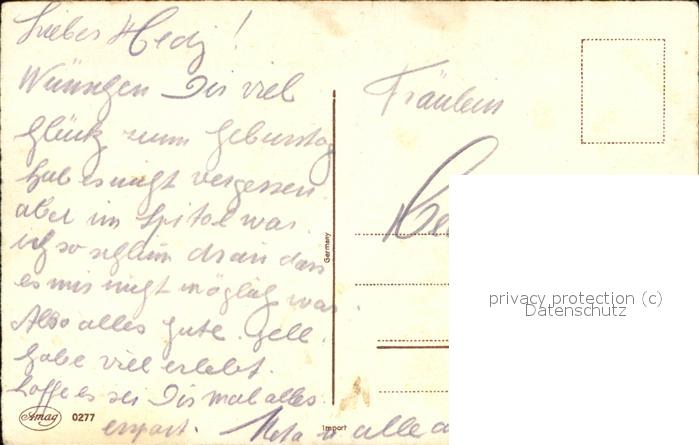 Liebes Hedj!
Wünschen Dir viel
Glück zum Geburstag
hab es nicht vergessen
aber im Spital was
ich so schlim dran dass
es mir nicht möglich was.
Also alles gute. gell.
habe viel erlebt.
hoffe es sei Dir mal alles
erspart. Meta u alle
Fräulein
Germany
Import
Amag 0277
privacy protection (c)
Datenschutz